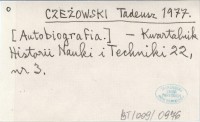 0
CZEŻOWSKI Tadeusz 1977.
[Autobiografia.] – Kwartalnik
Historii Nauki i Techniki 22,
nr 3.
BT/009/0946